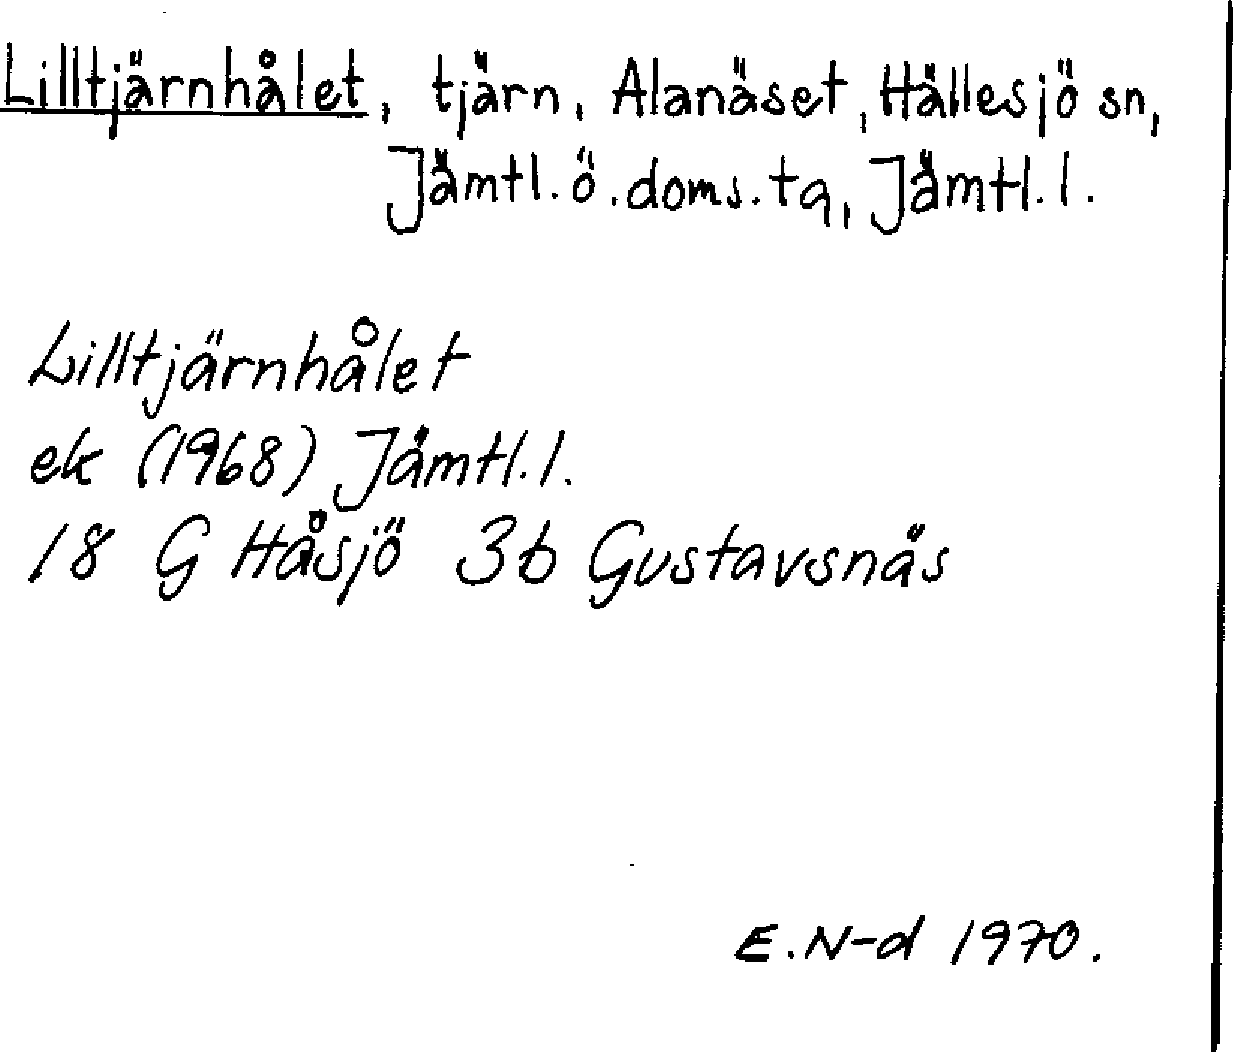 Lilltjärnhålet, tjärn, Alanäset, Hällesjö sn,
Jämtl. ö. doms. tq, Jämtl. l.
Lilltjärnhålet
ek (1968) Jämtl. l.
18 G Håsjö 3b Gustavsnäs
E. N-d 1970.